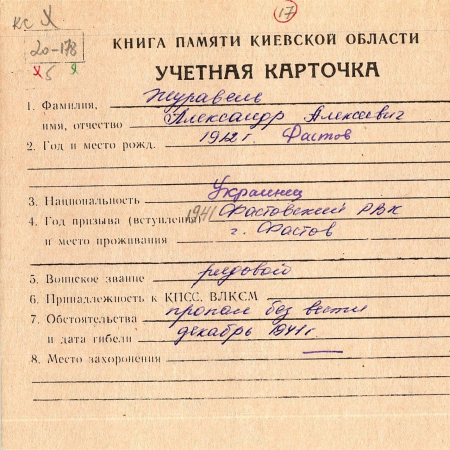 17
КС X
20-178
КНИГА ПАМЯТИ КИЕВСКОЙ ОБЛАСТИ
УЧЕТНАЯ КАРТОЧКА
1. Фамилия, Журавель
имя, отчество Александр Алексевич
2. Год и место рожд. 1912 г. Фастов
3. Национальность Украинец
4. Год призыва (вступления) 1941 Фастовский РВК
и место проживания г. Фастов
5. Воинское звание рядовой
6. Принадлежность к КПСС, ВЛКСМ
7. Обстоятельства пропал без вести
и дата гибели декабрь 1941 г.
8. Место захоронения —